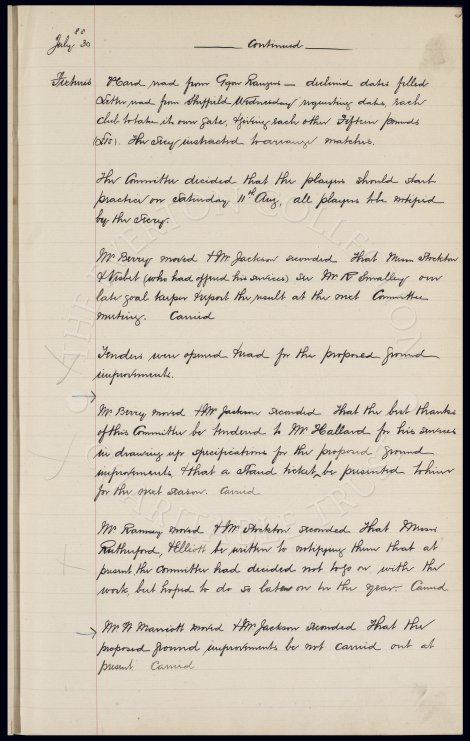 80
July 30
Continued
Fixtures Card read from Ggar Rangers — declined dates filled
Letter read from Sheffield Wednesday requesting dates, each
club to take its own gate, & giving each other Fifteen pounds
(£15). The Secy instructed to arrange matches.
The Committee decided that the players should start
practice on Saturday 11th Aug, all players to be notified
by the Secry
Mr Berry moved & Mr Jackson seconded That Messrs Stockton
& Nisbet (who had offered his services) see Mr R Smalley our
late goal keeper & report the result at the next Committee
meeting. Carried
Tenders were opened & read for the proposed ground
improvements.
Mr Berry moved & Mr Jackson seconded That the best thanks
of this Committee be tendered to Mr Hallard for his services
in drawing up specifications for the proposed ground
improvements, & that a stand ticket be presented to him
for the next season. Carried
Mr Ramsay moved & Mr Stockton seconded That Messrs
Rutherford, & Elliott be written to notifying them that at
present the Committee had decided not to go on with the
work, but hoped to do so later on in the year. Carried
Mr W Marriott moved & Mr Jackson seconded That the
proposed ground improvements be not carried out at
present Carried
THE EVERTON COLLECTION
CHARITABLE TRUST